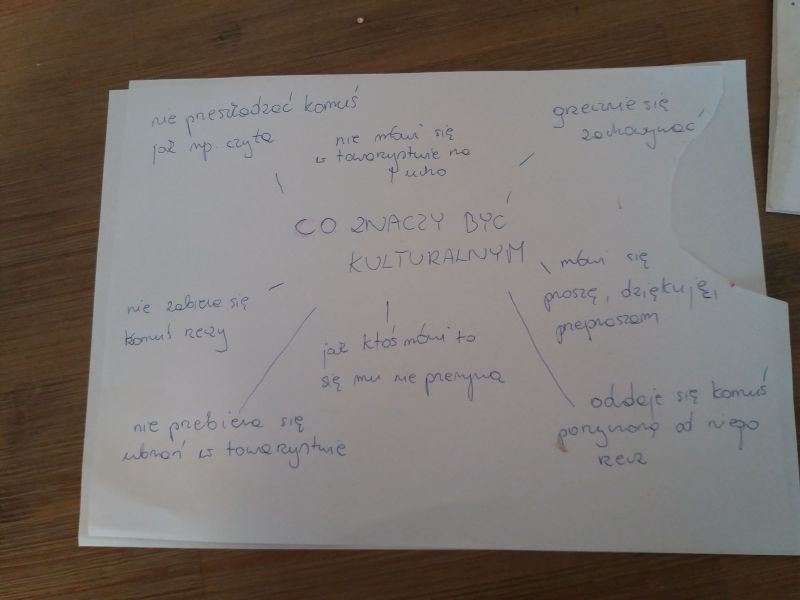 nie preszkadzać komuś
jak np. czyta
nie mówi się
w towarzystwie na
ucho
grzecznie się
zachowywać
CO ZNACZY BYĆ
KULTURALNYM
mówi się
proszę, dziękuję,
przepraszam
nie zabiera się
komuś rzeczy
jak ktoś mówi to
się mu nie preryna
nie przebiera się
ubrań w towarzystwie
oddaje się komuś
pożyczoną od niego
rzecz